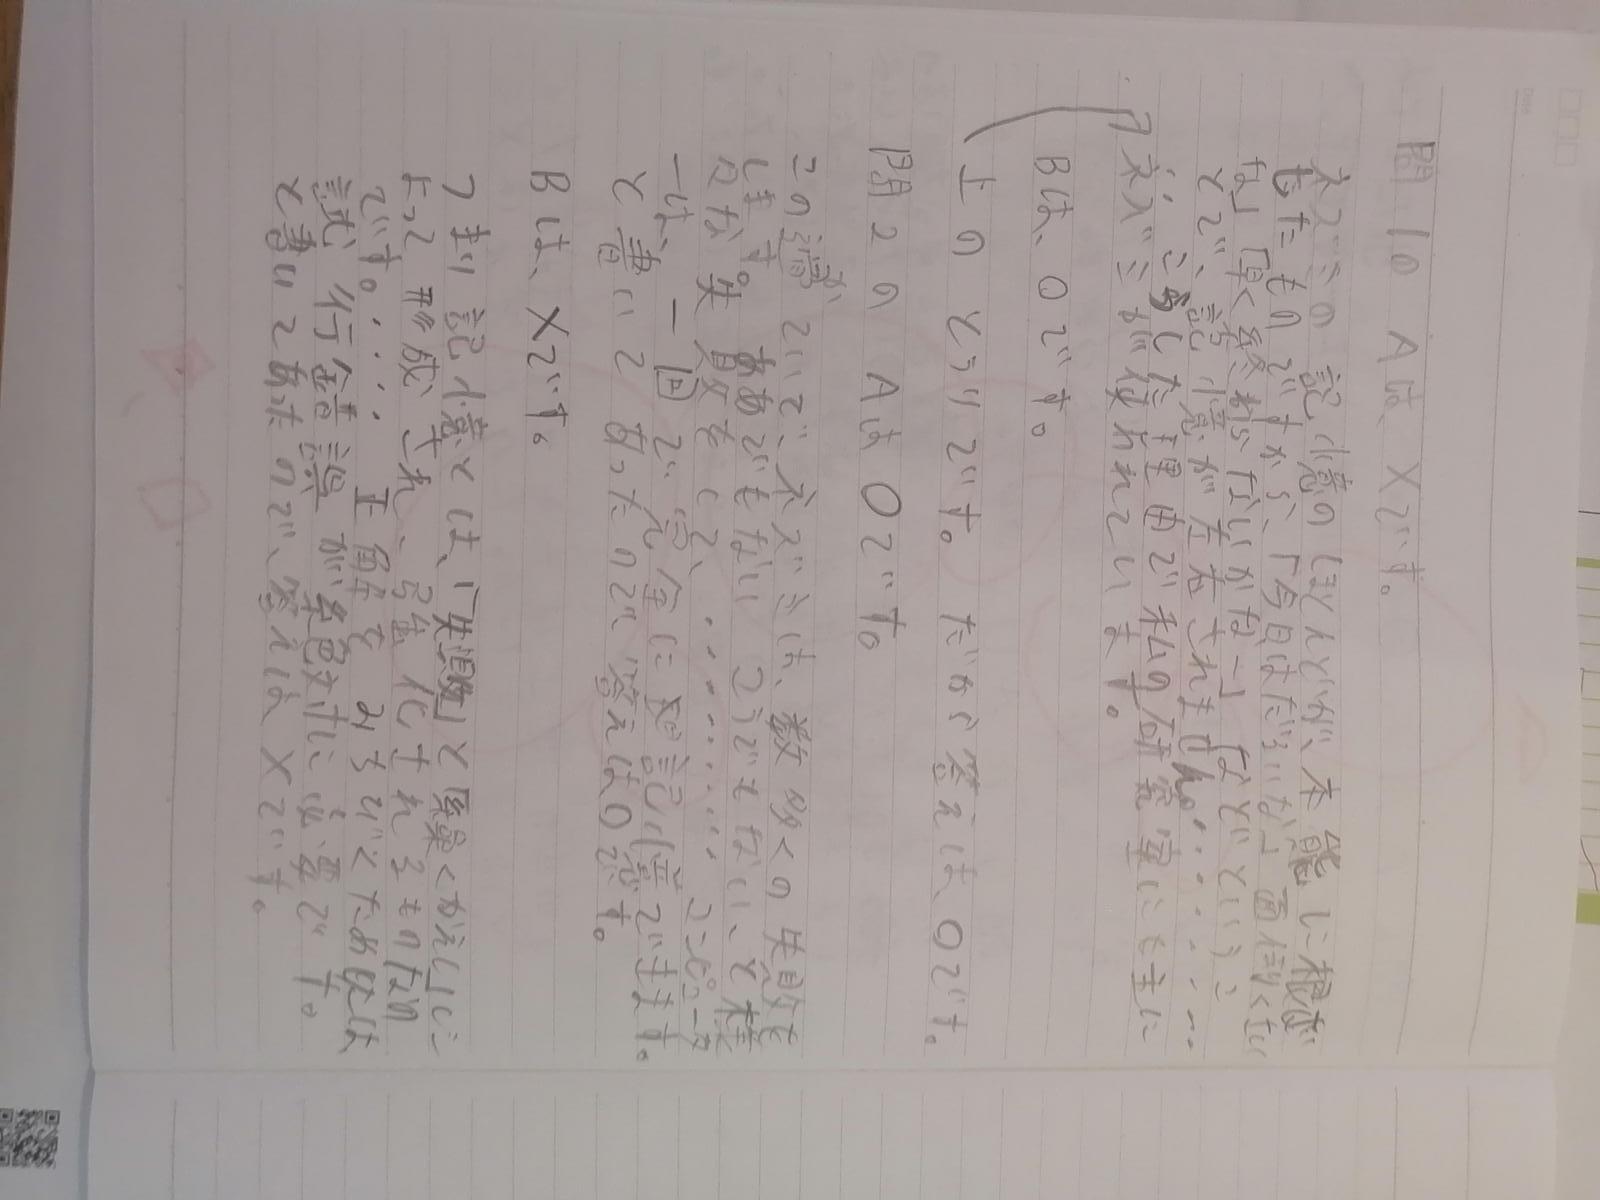 問1の Aは、×です。
ネズミの記憶のほとんどが、本能に根ざ
したものですから、「今日はだるいな」「面倒くさい
な」「早く終わらないかなー」などというこ
とで、記憶が左右されません。……
… こうした理由で私の研究室にも主に
ネズミが使われています。
Bは、○です。
上のとうりです。だから答えは、○です。
問2の Aは○です。
この導かについて、ネズミは、数多くの失敗を
します。ああでもない こうでもない、と様
々な失敗をして、……… コンピュータ
ーは、一回で完全に記憶できます。
と書いてあったので、答えは○です。
Bは、×です。
つまり記憶とは、「失敗」と「繰りかえし」に
よって形成され、強化されるものなの
です。…… 正解をみちびくためには
試行錯誤が絶対に必要です。
と書いてあるので、答えは×です。